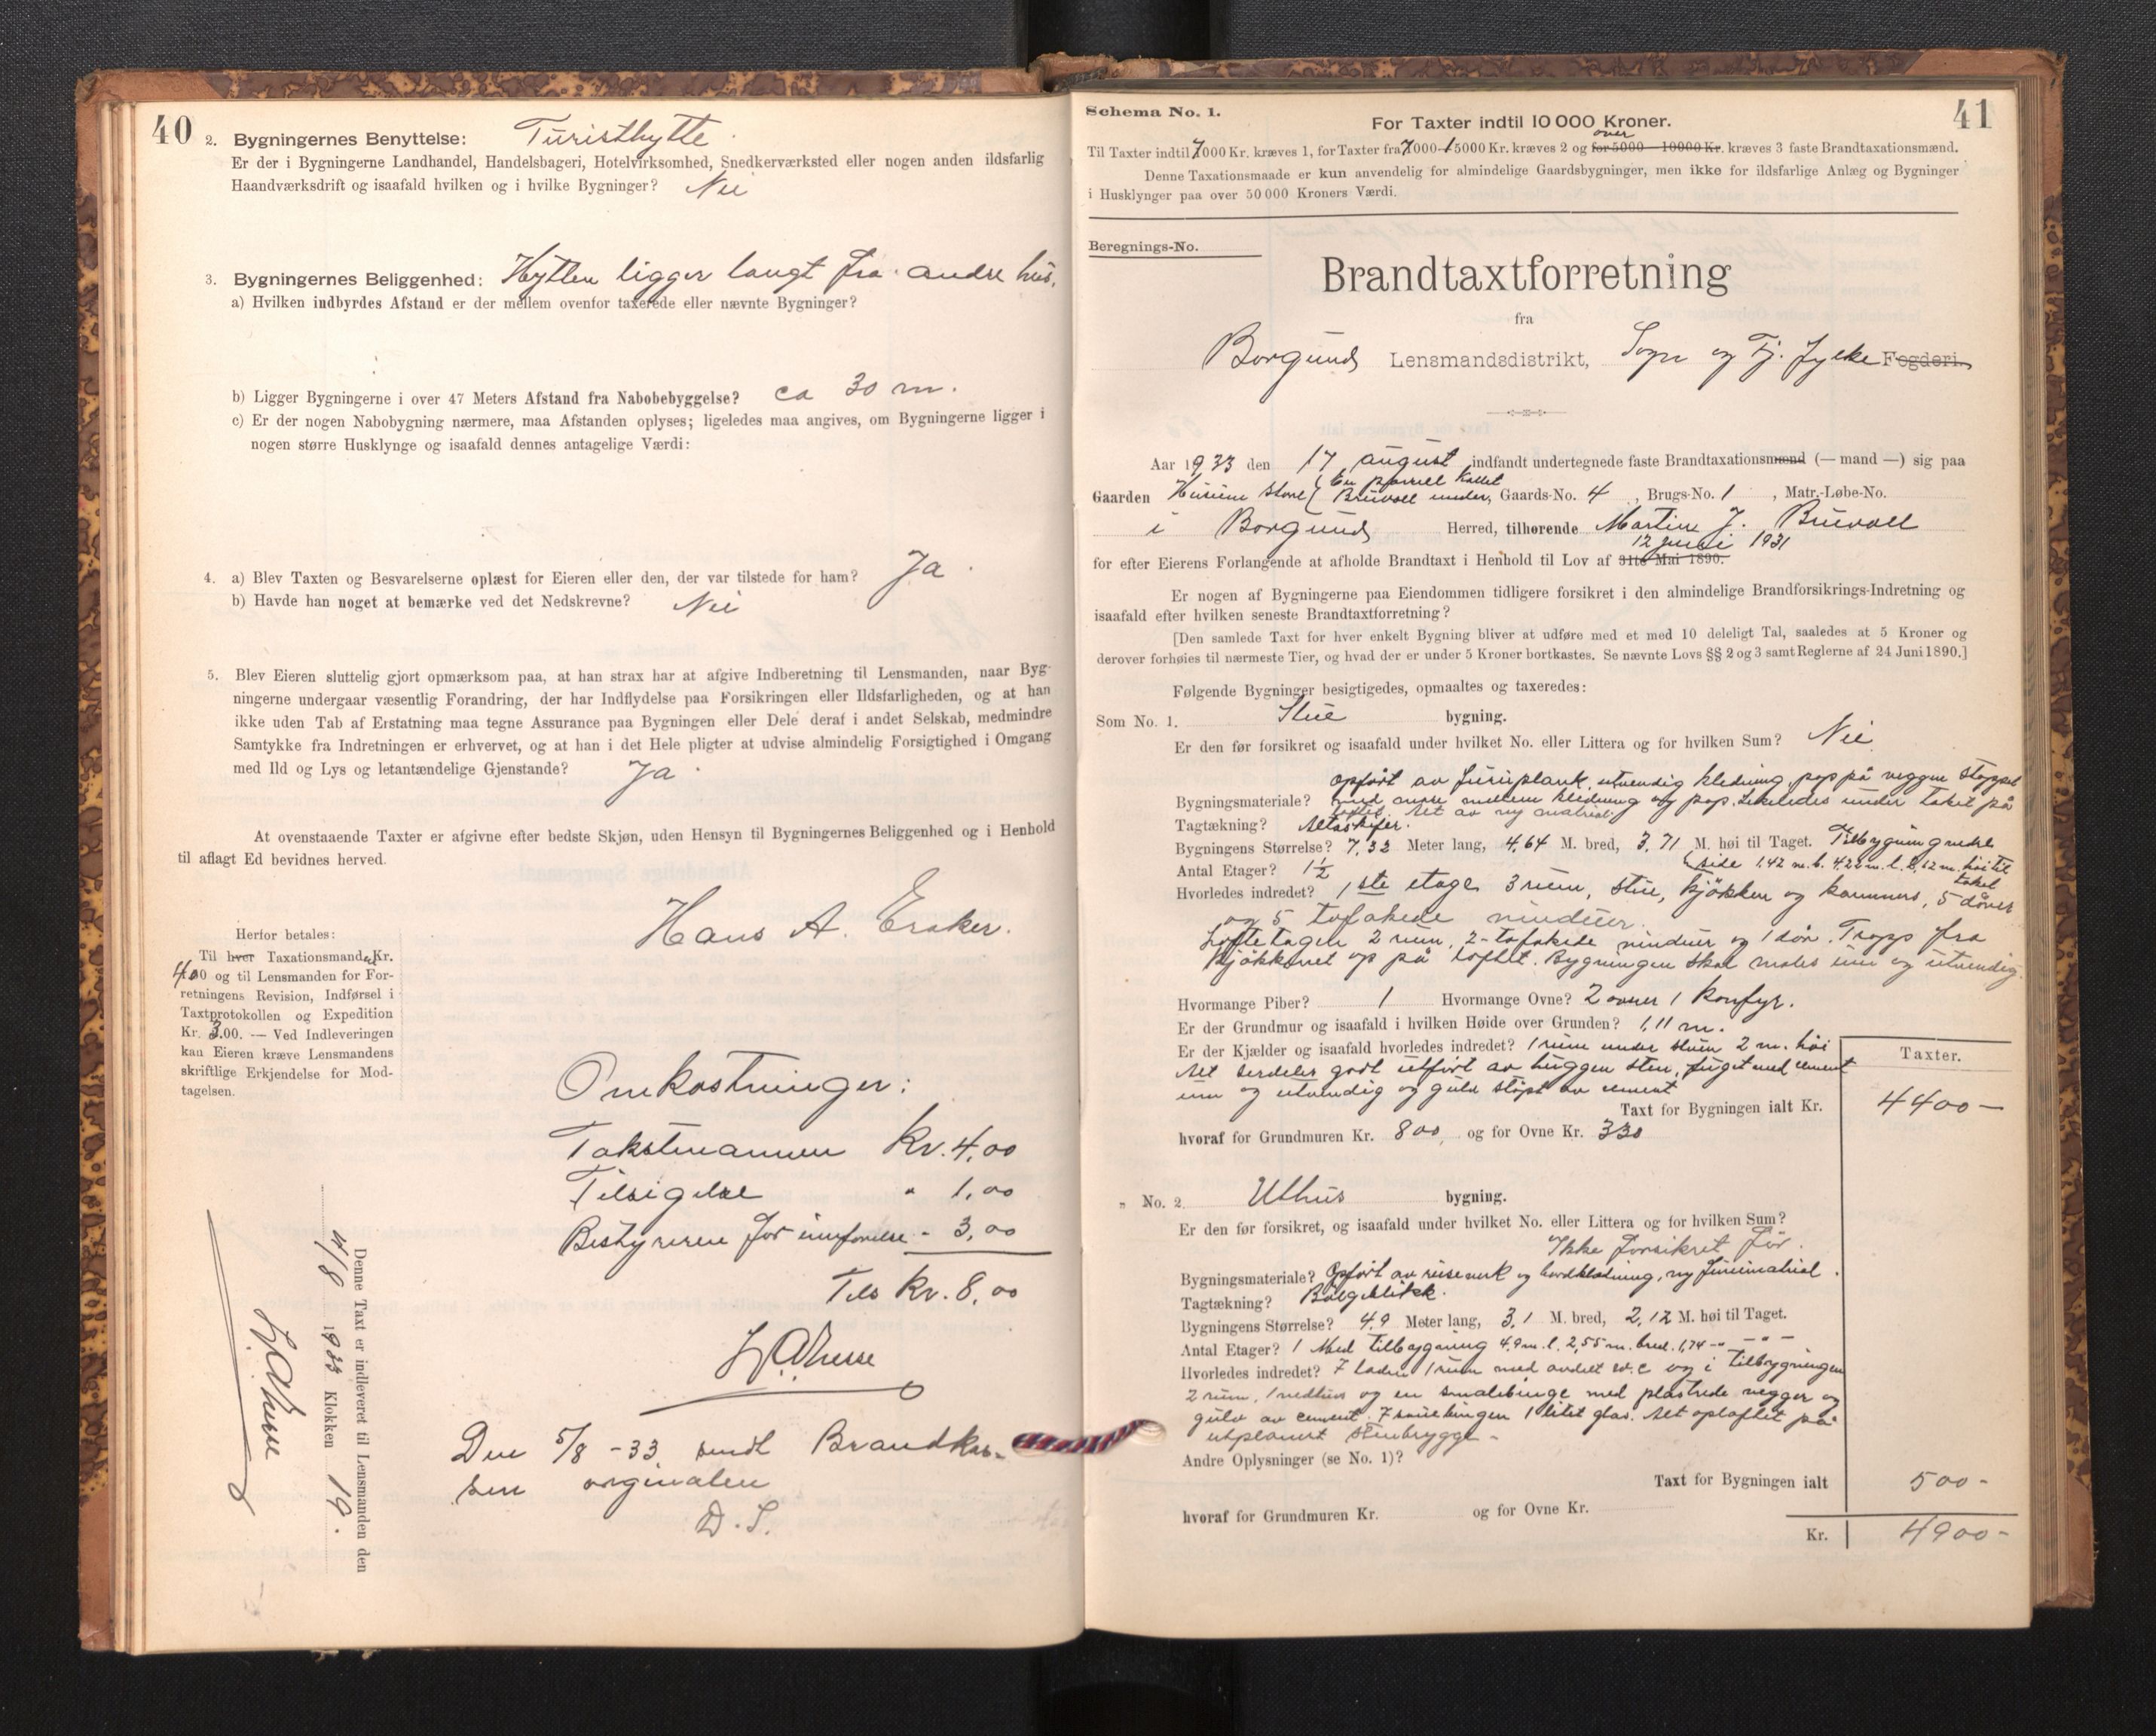 40
2. Bygningernes Benyttelse: Turisthytte.
Er der i Bygningerne Landhandel, Handelsbageri, Hotelvirksomhed, Snedkerværksted eller nogen anden ildsfarlig
Haandværksdrift og isaafald hvilken og i hvilke Bygninger? Nei
3. Bygningernes Beliggenhed: Hytten ligger langt fra andre hus.
a) Hvilken indbyrdes Afstand er der mellem ovenfor taxerede eller nævnte Bygninger?
b) Ligger Bygningerne i over 47 Meters Afstand fra Nabobebyggelse? ca 30 m.
c) Er der nogen Nabobygning nærmere, maa Afstanden oplyses; ligeledes maa angives, om Bygningerne ligger i
nogen større Husklynge og isaafald dennes antagelige Værdi:
4. a) Blev Taxten og Besvarelserne oplæst for Eieren eller den, der var tilstede for ham? Ja.
b) Havde han noget at bemærke ved det Nedskrevne? Nei
5. Blev Eieren sluttelig gjort opmærksom paa, at han strax har at afgive Indberetning til Lensmanden, naar Byg-
ningerne undergaar væsentlig Forandring, der har Indflydelse paa Forsikringen eller Ildsfarligheden, og at han
ikke uden Tab af Erstatning maa tegne Assurance paa Bygningen eller Dele deraf i andet Selskab, medmindre
Samtykke fra Indretningen er erhvervet, og at han i det Hele pligter at udvise almindelig Forsigtighed i Omgang
med Ild og Lys og letantændelige Gjenstande? Ja.
At ovenstaaende Taxter er afgivne efter bedste Skjøn, uden Hensyn til Bygningernes Beliggenhed og i Henhold
til aflagt Ed bevidnes herved.
Hans A. Eraker.
Herfor betales:
Til hver Taxationsmanden Kr.
4.00 og til Lensmanden for For-
retningens Revision, Indførsel i
Taxtprotokollen og Expedition
Kr. 3.00. — Ved Indleveringen
kan Eieren kræve Lensmandens
skriftlige Erkjendelse for Mod-
tagelsen.
Omkostninger:
Takstmannen Kr. 4,00
Tilsigelse " 1,00
Bestyreren for innførelse - 3,00
Tils Kr. 8,00
Den 5/8 -33 sendt Brandkas-
sen orginalen
D.S.
Denne Taxt er indleveret til Lensmanden den
1933 Klokken 19.
Schema No. 1.
41
For Taxter indtil 10 000 Kroner.
over
Til Taxter indtil 7000 Kr. kræves 1, for Taxter fra 7000-15000 Kr. kræves 2 og for 5000—10000 Kr. kræves 3 faste Brandtaxationsmænd.
Denne Taxationsmaade er kun anvendelig for almindelige Gaardsbygninger, men ikke for ildsfarlige Anlæg og Bygninger
i Husklynger paa over 50 000 Kroners Værdi.
Beregnings-No.
Brandtaxtforretning
fra
Borgund Lensmandsdistrikt, Sogn og Fj. fylke Fogderi.
Aar 1933 den 17 august indfandt undertegnede faste Brandtaxationsmænd (— mand —) sig paa
En parsell kallet
Gaarden Husum store Bruvoll under, Gaards-No. 4, Brugs-No. 1, Matr.-Løbe-No.
i Borgund Herred, tilhørende Martin J. Bruvoll
12 juni 1931
for efter Eierens Forlangende at afholde Brandtaxt i Henhold til Lov af 31te Mai 1890.
Er nogen af Bygningerne paa Eiendommen tidligere forsikret i den almindelige Brandforsikrings-Indretning og
isaafald efter hvilken seneste Brandtaxtforretning?
[Den samlede Taxt for hver enkelt Bygning bliver at udføre med et med 10 deleligt Tal, saaledes at 5 Kroner og
derover forhøies til nærmeste Tier, og hvad der er under 5 Kroner bortkastes. Se nævnte Lovs §§ 2 og 3 samt Reglerne af 24 Juni 1890.]
Følgende Bygninger besigtigedes, opmaaltes og taxeredes:
Som No. 1. Stue bygning.
Er den før forsikret og isaafald under hvilket No. eller Littera og for hvilken Sum? Nei
opført av furuplank, utvendig kledning, pap på veggen stoppet
Bygningsmateriale? med mose mellem kledning og pap. Likeledes under taket på
loftet. Alt av ny matrial.
Tagtækning? Altaskifer.
Bygningens Størrelse? 7,32 Meter lang, 4,64 M. bred, 3,71 M. høi til Taget. Tilbygning nedre
side 1,42 m. b. 4,22 m. l. 2,12 m. høi til
taket
Antal Etager? 1½
Hvorledes indredet? 1ste etage 3 rum, stue, kjøkken og kammers, 5 dører
og 5 tofakede vinduer.
Loftetagen 2 rum, 2-tofakede vinduer og 1 dør. Trapp fra
kjøkkenet op på loftet. Bygningen skal males inn og utvendig.
Hvormange Piber? 1 Hvormange Ovne? 2 ovner 1 komfyr.
Er der Grundmur og isaafald i hvilken Høide over Grunden? 1,11 m.
Er der Kjælder og isaafald hvorledes indredet? 1 rum under stuen 2 m. høi
Alt serdeles godt utført av huggen sten, fuget med cement
inn og utvendig og gulv støpt av cement
Taxter.
Taxt for Bygningen ialt Kr. 4400—
hvoraf for Grundmuren Kr. 800 og for Ovne Kr. 330
" No. 2. Uthus bygning.
Er den før forsikret, og isaafald under hvilket No. eller Littera og for hvilken Sum?
Ikke forsikret før.
Bygningsmateriale? Opført av reisverk og bordkledning, ny furumatrial.
Tagtækning? Bølgeblikk.
Bygningens Størrelse? 4,9 Meter lang, 3,1 M. bred, 2,12 M. høi til Taget.
Antal Etager? 1 Med tilbygning 4,9 m. l. 2,55 m. bred. 1,74 -"- -"-
Hvorledes indredet? 7 laden 1 rum med avdelt w.c og i tilbygningen
2 rum, 1 vedhus og en smalebinge med plastrede vegger og
gulv av cement. I sauebingen 1 litet glas. Alt opløftet på
utplanert stenbrygge -
Andre Oplysninger (se No. 1)?
Taxt for Bygningen ialt 500-
hvoraf for Grundmuren Kr. og for Ovne Kr.
Kr. 4900-